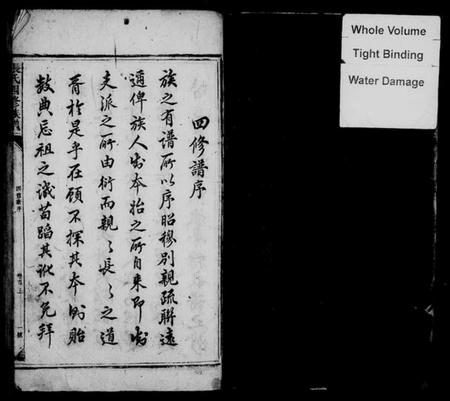 四修譜序
族之有譜所以序昭穆別親疏聯遠
邇俾族人知本始之所自來即知
支派之所由衍而親〻長〻之道
胥於是乎在顧不探其本則貽
數典忘祖之譏苟蹈其訛不免拜
四修譜序
卷首上
一號
Whole Volume
Tight Binding
Water Damage